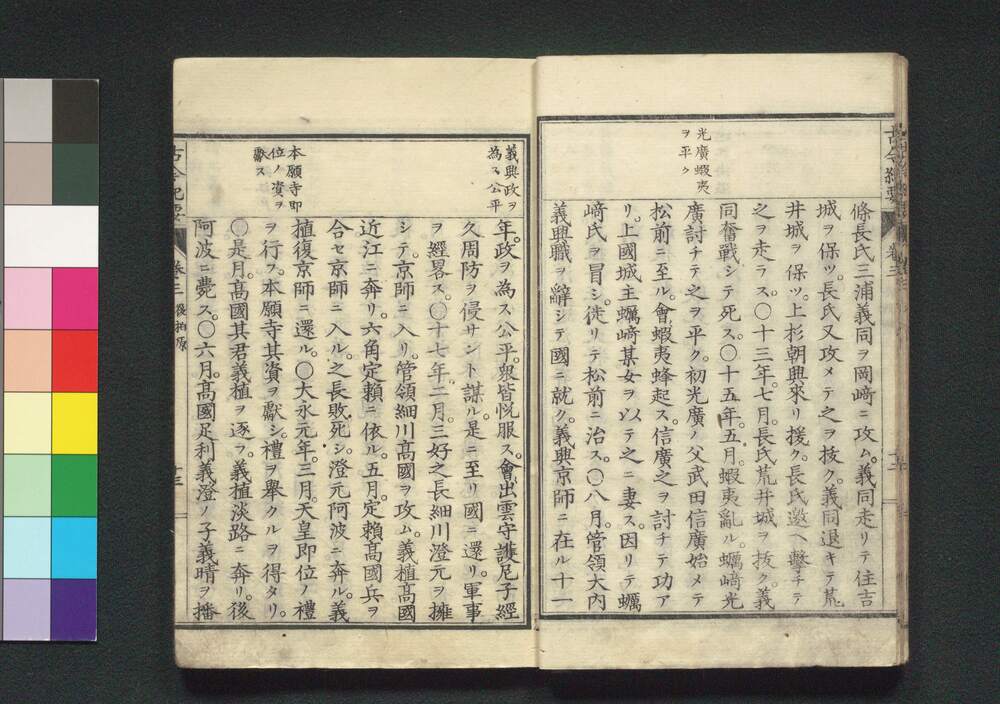 光廣蝦夷
ヲ平ク
條長氏三浦義同ヲ岡﨑ニ攻ム。義同走リテ住吉
城ヲ保ツ。長氏又攻メテ之ヲ拔ク。義同退キテ荒
井城ヲ保ツ。上杉朝興來リ援ク。長氏邀ヘ擊チテ
之ヲ走ラス。〇十三年。七月。長氏荒井城ヲ拔ク。義
同奮戰シテ死ス。〇十五年。五月。蝦夷亂ル。蠣﨑光
廣討チテ之ヲ平ク。初光廣ノ父武田信廣始メテ
松前ニ至ル。會蝦夷蜂起ス。信廣之ヲ討チテ功ア
リ。上國城主蠣﨑某女ヲ以テ之ニ妻ス。因リテ蠣
﨑氏ヲ冒シ。徙リテ松前ニ治ス。〇八月。管領大內
義興職ヲ辭シテ國ニ就ク。義興京師ニ在ル十一
義興政ヲ
為ス公平
本願寺即
位ノ資ヲ
獻ス
年。政ヲ為ス公平。衆皆悅服ス。會出雲守護尼子經
久周防ヲ侵サント謀ル。是ニ至リ國ニ還リ。軍事
ヲ經畧ス。〇十七年。二月。三好之長細川澄元ヲ擁
シテ。京師ニ入リ。管領細川髙國ヲ攻ム。義植髙國
近江ニ奔リ。六角定賴ニ依ル。五月。定賴髙國兵ヲ
合セ京師ニ入ル。之長敗死シ。澄元阿波ニ奔ル。義
植復京師ニ還ル。〇大永元年。三月。天皇即位ノ禮
ヲ行フ。本願寺其資ヲ獻シ。禮ヲ舉クルヲ得タリ。
〇是月。髙國其君義植ヲ逐フ。義植淡路ニ奔リ。後
阿波ニ薨ス。〇六月。髙國足利義澄ノ子義晴ヲ播
古今紀要 卷三 後柏原 十三